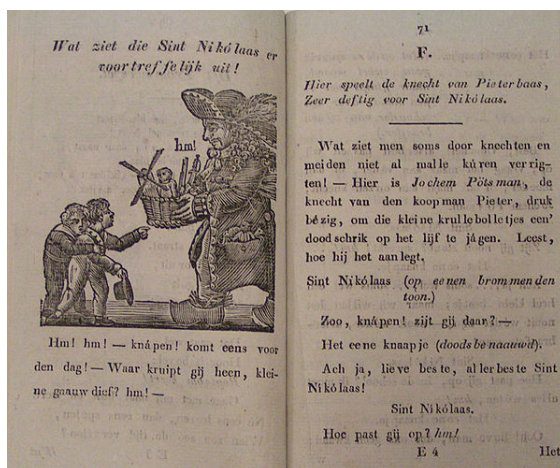 Wat ziet die Sint Nikólaas er
voortreffelijk uit!
hm!
Hm! hm! — knápen! komt eens voor
den dag! — Waar kruipt gij heen, klei-
ne gaauwdief? hm! —
71
F.
Hier speelt de knecht van Pieterbaas,
Zeer deftig voor Sint Nikólaas.
Wat ziet men soms door knechten en
meiden niet al malle kúren verrig-
ten! — Hier is Jochem Pötsman, de
knecht van den koopman Pieter, druk
bézig, om die kleine krullebolletjes een'
doodschrik op het lijf te jágen. Leest,
hoe hij het aanlegt.
Sint Nikólaas (op eenen brommenden
toon.)
Zoo, knápen! zijt gij daar? —
Het eene knaapje (doodsbenaauwd).
Ach ja, lieve beste, allerbeste Sint
Nikólaas!
Sint Nikólaas.
Hoe past gij op? hm!
E 4
Het